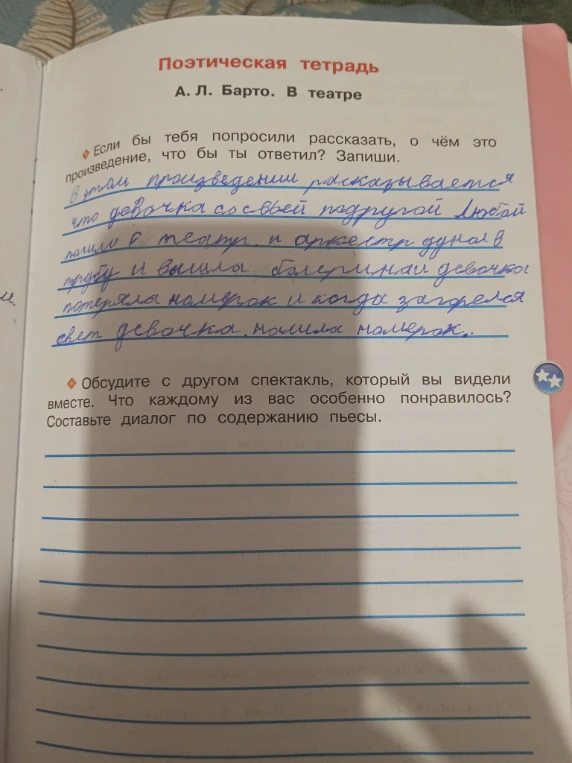 Поэтическая тетрадь
А. Л. Барто. В театре
Если бы тебя попросили рассказать, о чём это
произведение, что бы ты ответил? Запиши.
В этом произведении расказывается
что девочка со свьей подругой Любой
пошли в театр и аркестр дунол в
трубу и вышла болерина и девочка
потеряла номерок и когда загорелся
свет девочка нашла номерок.
Обсудите с другом спектакль, который вы видели
вместе. Что каждому из вас особенно понравилось?
Составьте диалог по содержанию пьесы.